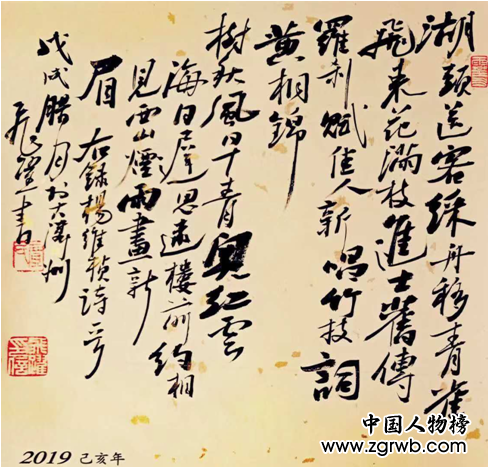 湖頭送客綵舟移青雀
飛來花滿枝進士舊傳
羅刹賦佳人新唱竹枝詞
黄桐錦
樹秋風早青紅雲
海日遲思遠樓前約相
見西山煙雨畫新
眉 右録楊維楨詩
戊戌臘月
書
2019 己亥年
中国人物榜
www.zgrwb.com